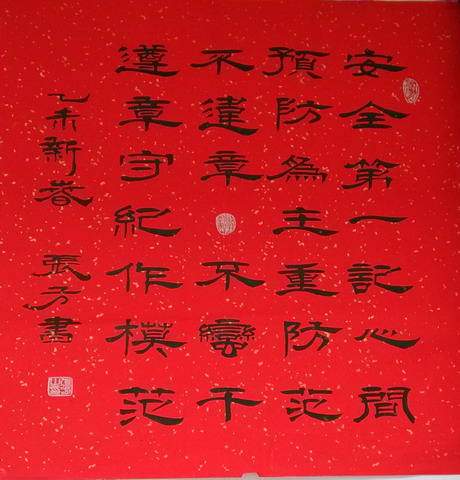 安全第一記心間
預防為主重防范
不違章不蠻干
遵章守紀作模范
乙未新春 張方書